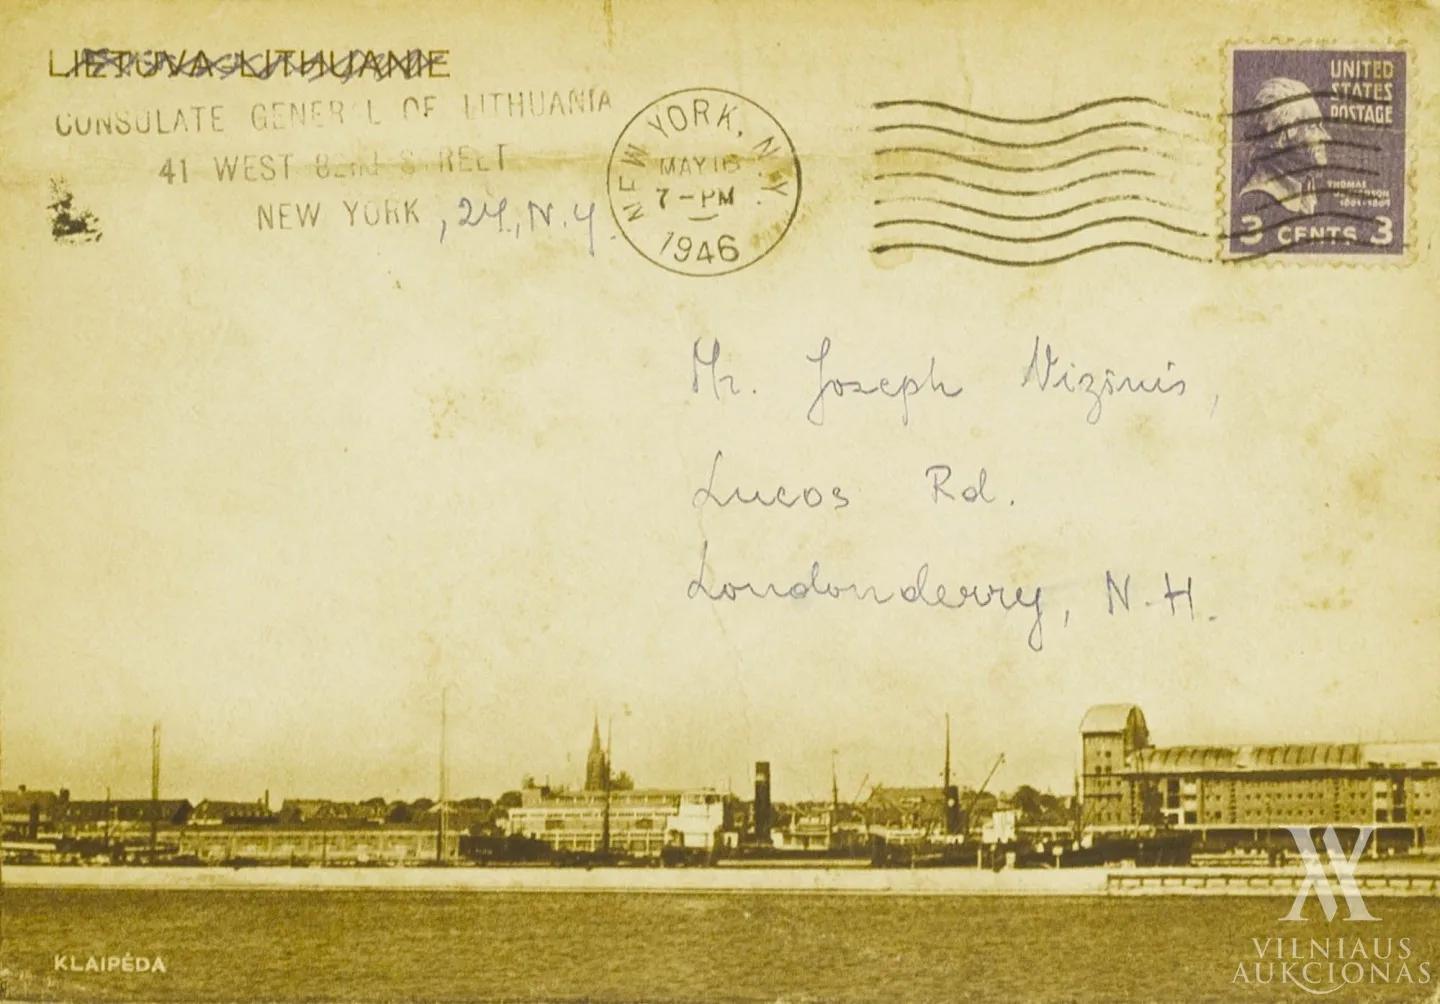 LIETUVA-LITHUANIE
CONSULATE GENERAL OF LITHUANIA
41 WEST 82ND STREET
NEW YORK, 24, N.Y.
NEW YORK, N.Y.
MAY 16
7-PM
1946
UNITED
STATES
POSTAGE
THOMAS
JEFFERSON
1801-1809
3 CENTS 3
Mr. Joseph Vizinis,
Lucas Rd.
Londonderry, N.H.
KLAIPĖDA
VILNIAUS
AUKCIONAS